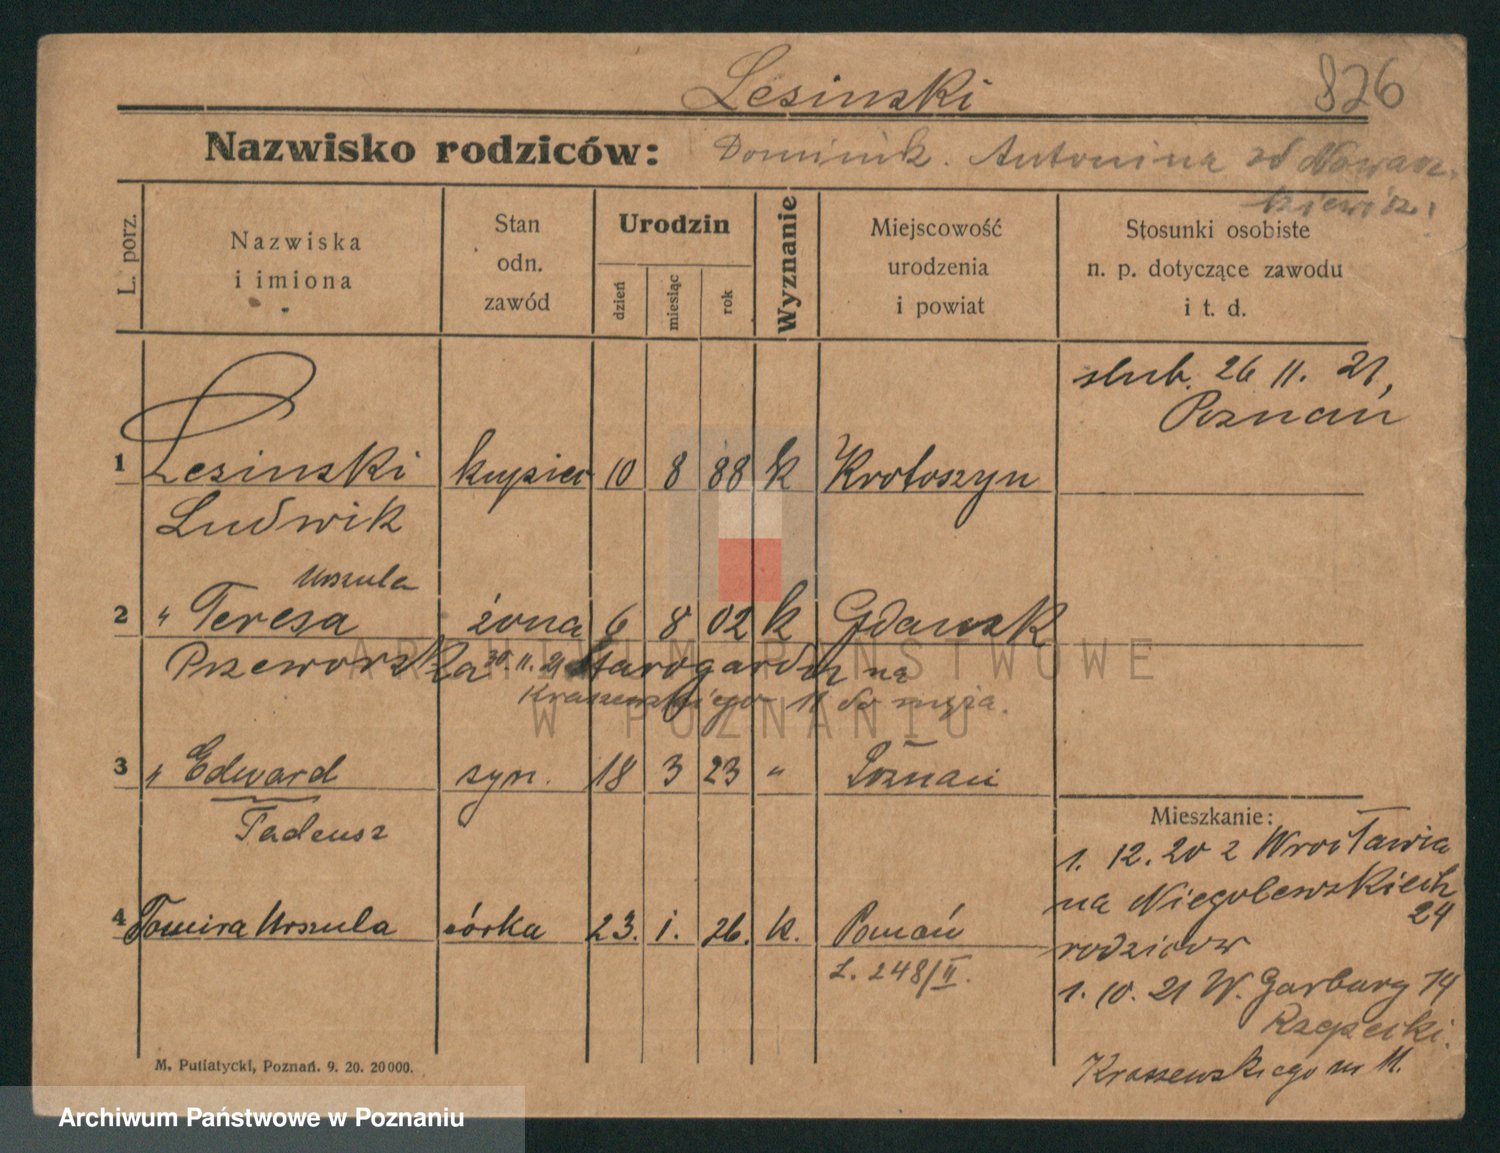 Lesinski
826
Nazwisko rodziców: Dominik. Antonina zd Nowac-
kiewicz.
L. porz.
Nazwiska
i imiona
Stan
odn.
zawód
Urodzin
dzień
miesiąc
rok
Wyznanie
Miejscowość
urodzenia
i powiat
Stosunki osobiste
n. p. dotyczące zawodu
i t. d.
ślub. 26 11. 21,
Poznań
1 Lesinski kupiec 10 8 88 k Krotoszyn
Ludwik
Urszula
2 " Teresa żona 6 8 02 k Gdańsk
Przeworska 30. 11. 21 Starogardu na
Kraszewskiego 11 do męża.
3 " Edward syn. 18 3 23 " Poznań
Tadeusz
4 Tomira Urszula córka 23. 1. 26. k. Poznań
L. 248/II.
Mieszkanie:
1. 12. 20 z Wrocławia
na Niegolewskich
24
rodziców
1. 10. 21 W. Garbary 14
Rzepecki.
Kraszewskiego nr 11.
M. Putiatycki, Poznań. 9. 20. 20000.
ARCHIWUM PAŃSTWOWE
W POZNANIU
Archiwum Państwowe w Poznaniu